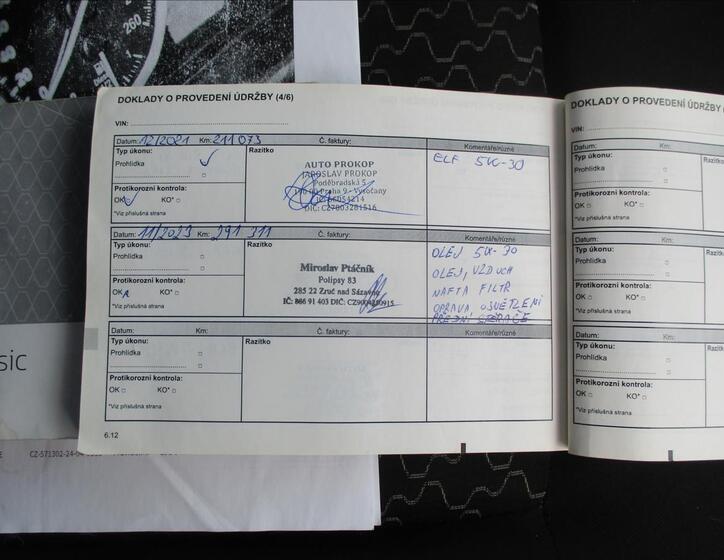 260
DOKLADY O PROVEDENÍ ÚDRŽBY (4/6)
VIN:
Datum: 12/2021 Km: 211 073 Č. faktury: Komentáře/různé
Typ úkonu: Razítko
Prohlídka
Protikorozní kontrola:
OK KO*
*Viz příslušná strana
AUTO PROKOP
JAROSLAV PROKOP
Poděbradská 5
Praha 9 - Vysočany
DIČ: CZ7803281516
ELF 5W-30
Datum: 11/2023 Km: 291 311 Č. faktury: Komentáře/různé
Typ úkonu: Razítko
Prohlídka
Protikorozní kontrola:
OK KO*
*Viz příslušná strana
Miroslav Ptáčník
Polipsy 83
285 22 Zruč nad Sázavou
IČ: 886 91 403 DIČ:
OLEJ 5W-30
OLEJ, VZDUCH
NAFTA FILTR
OPRAVA OSVĚTLENÍ
PŘEDNÍ STĚRAČE
Datum: Km: Č. faktury: Komentáře/různé
Typ úkonu: Razítko
Prohlídka
Protikorozní kontrola:
OK KO*
*Viz příslušná strana
6.12
DOKLADY O PROVEDENÍ ÚDRŽBY (
VIN:
Datum: Km:
Typ úkonu: Ra
Prohlídka
Protikorozní kontrola:
OK KO*
*Viz příslušná strana
Datum: Km:
Typ úkonu: Raz
Prohlídka
Protikorozní kontrola:
OK KO*
*Viz příslušná strana
Datum: Km:
Typ úkonu: Raz
Prohlídka
Protikorozní kontrola:
OK KO*
*Viz příslušná strana
sic